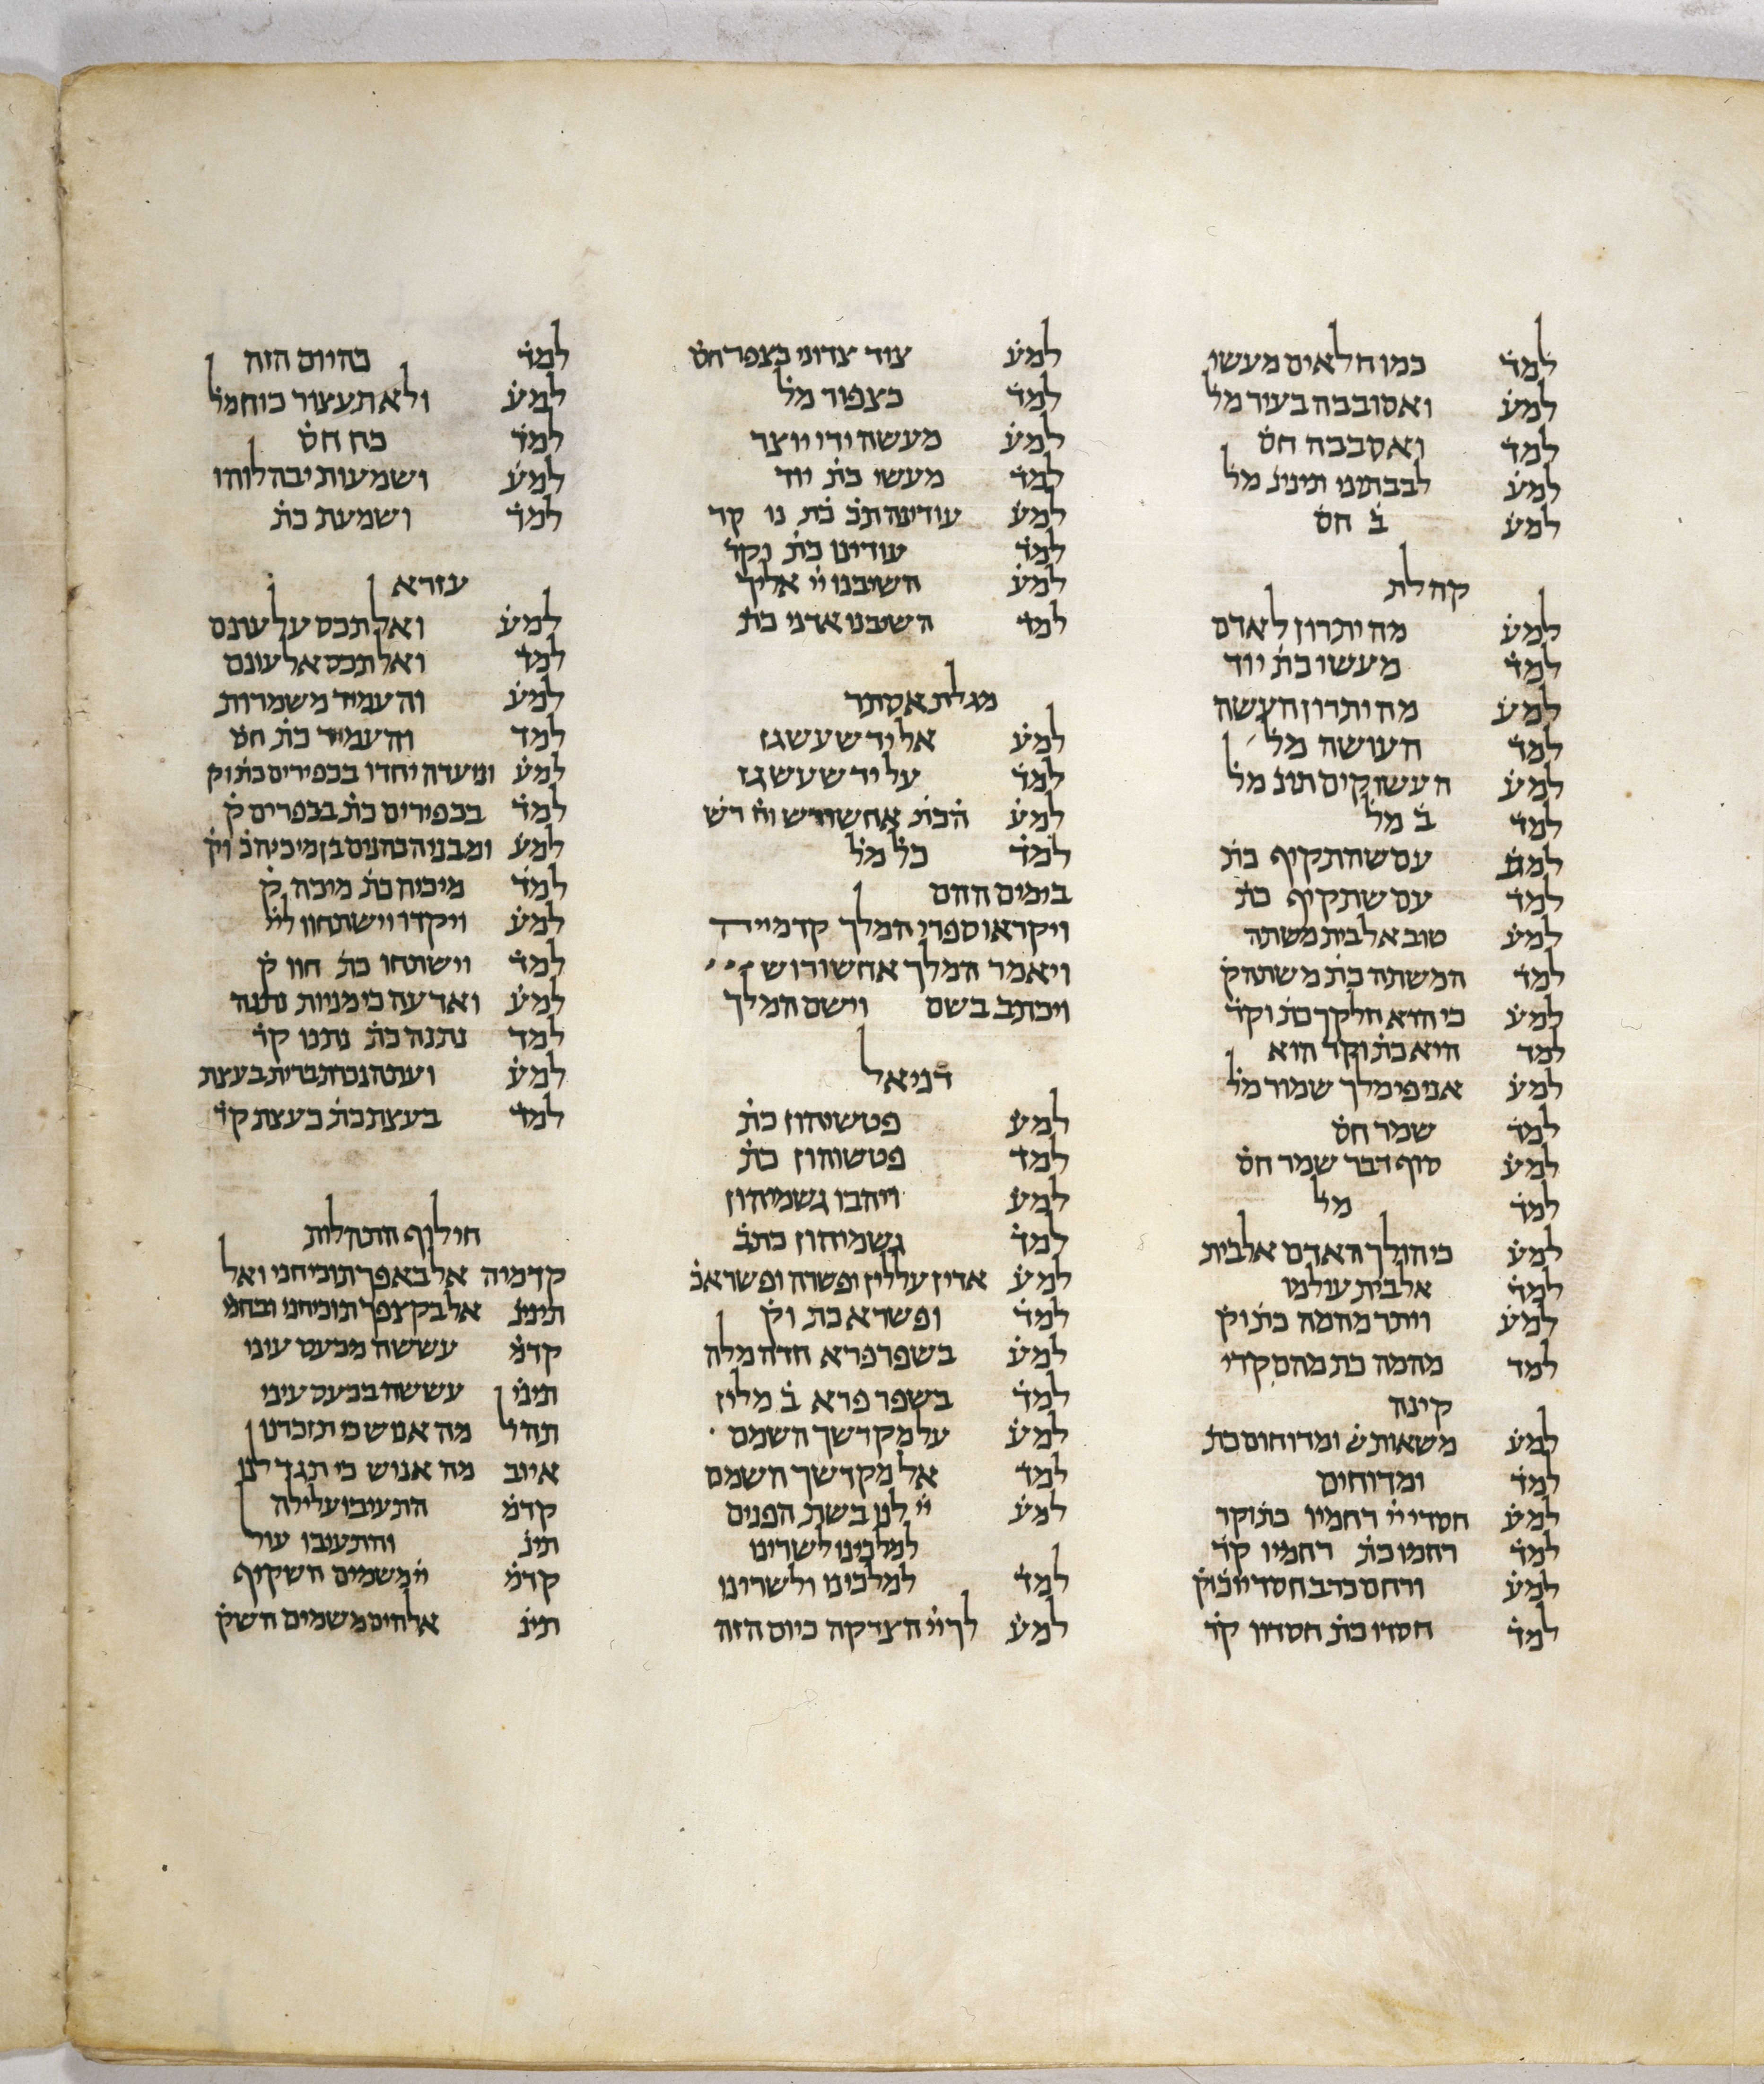 למד כמו חלאים מעשי
למע ואסובבה בעיר מל
למד ואסבבה חס
למע לבבתיני תינינ מל
למע ב חס
קהלת
למע מה יתרון לאדם
למד מעשו כת יוד
למע מה יתרון העשה
למד העושה מל
למע העשוקים תינ מל
למד ב מל
למע עם שהתקיף כת
למד עם שתקיף כת
למע טוב אל בית משתה
למד המשתה כת משתה ק
למע כי הוא חלקך כת וקר
למד היא כת וקר הוא
למע אני פי מלך שמור מל
למד שמר חס
למע סוף דבר שמר חס
למד מל
למע כי הולך האדם אל בית
למד אל בית עולמו
למע ויתר מהמה כת וק
למד מהמה כת מהם קרי
קינה
למע משאות ש ומדוחים כת
למד ומדוחים
למע חסדי יי רחמיו כת וקר
למד רחמו כת רחמיו קר
למע ורחם כרב חסדיו כ וק
למד חסדו כת חסדיו קר
למע צוד צדוני כצפר חס
למד כצפור מל
למע מעשה ידי יוצר
למד מעשי כת יוד
למע עודינה תכ כת נו קר
למד עודינו כת וקר
למע השיבנו יי אליך
למד השבנו אדני כת
מגלת אסתר
למע אל יד שעשגז
למד על יד שעשגז
למע הכת אחשורש וח רש
למד כל מל
בימים ההם
ויקראו ספרי המלך קדמייה
ויאמר המלך אחשורוש
ויכתב בשם וישם המלך
דניאל
למע פטשיהון כת
למד פטשוהון כת
למע ויהבו גשמיהון
למד גשמיהון כתב
למע אדין עללין ופשרה ופשרא כ
למד ופשרא כת וק
למע בשפרפרא חדה מלה
למד בשפר פרא ב מלין
למע על מקדשך השמם
למד אל מקדשך השמם
למע יי לנו בשת הפנים
למלכינו לשרינו
למד למלכינו ולשרינו
למע לך יי הצדקה כיום הזה
למד כהיום הזה
למע ולא תעצור כוח מל
למד כח חס
למע ושמעות יבהלוהו
למד ושמעת כת
עזרא
למע ואל תכס על עונם
למד ואל תכס אל עונם
למע והעמיד משמרות
למד והעמיד כת חס
למע ונועדה יחדו בכפירים כת וק
למד בכפירים כת בכפרים ק
למע ומבני הכהנים בן מיכיה כ וק
למד מיכיה כת מיכה ק
למע ויקדו וישתחוו ליי
למד וישתחו כת חוו ק
למע ואדעה כי מניות נתנה
למד נתנה כת נתנו קר
למע ועתה נכרת ברית בעצת
למד בעצת כת כעצת קר
חילוף התהלות
קדמיה אל באפך תוכיחני ואל
תינינ אל בקצפך תוכיחני ובחמ
קדמ עששה מכעס עיני
תינינ עששה בכעס עיני
תהל מה אנוש כי תזכרנו
איוב מה אנוש כי תגדלנו
קדמ התעיבו עלילה
תינ והתעיבו עול
קדמ יי משמים השקיף
תינ אלהים משמים השק